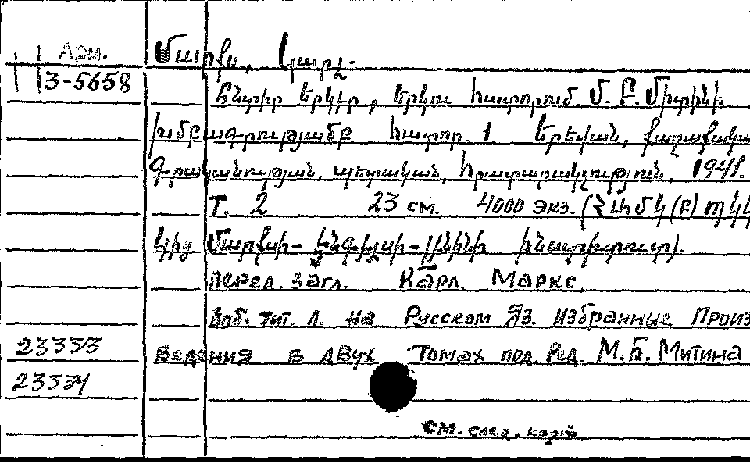 Арм.
3-5658
Մարքս, Կարլ.
Ընտիր երկեր, երկու հատորում Մ. Բ. Միտինի
խմբագրությամբ հատոր 1 Երևան, քաղաքական
Գրականության, պետական, հրատարակչություն, 1948.
Т. 2 23 см. 4000 экз.
կից Մարքսի-Էնգելսի-Լենինի ինստիտուտ).
перел. загл. Карл Маркс.
доб. тит. л. на Русском Яз. Избранные Произ
23333
ведения в двух Томах под. Ред. М.Б. Митина
23334
см. след. карт